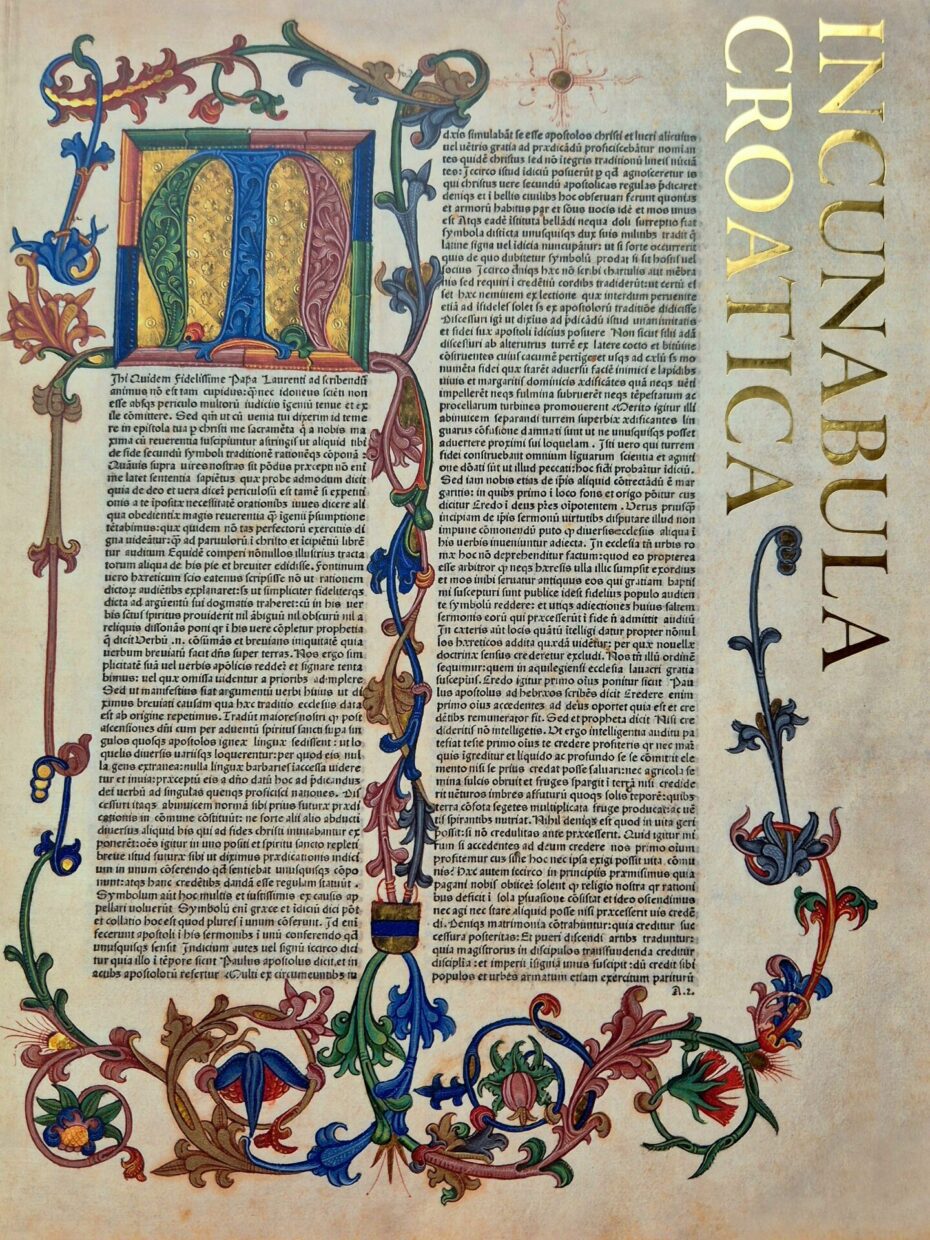 INCUNABULA
CROATICA
Jhi Quidem fidelissime Papa Laurenti ad scribendū
animus nō est tam cupidus: q̄ nec idoneus sciēti non
esse absqs periculo multorū iudiciis igeniū tenue et ex
ile cōmittere. Sed qm̄ ut cū uenia tui dixerim id teme
re in epistola tua p christi me sacramēta q̄ a nobis ma
xima cū reuerentia suscipiuntur astringis ut aliquid tibi
de fide secundū symboli traditionē rationēqs cōponā:
Quāuis supra uires nostras sit pōdus præcepti nō eni
me latet sententia sapiētū quæ probe admodum dicit
quia de deo et uera dicere periculosū est tamē si expetiti
onis a te ipositæ necessitatē orationibs iuues dicere ali
qua obedientiæ magis reuerentia q̄ igenii p̄sumptione
tētabimus: quæ quidem nō tas perfectorū exercitiis di
gna uideātur: q̄ ad paruulorū i christo et icipiētiū librē
tur auditum Equidē comperi nōnullos illustriū tracta
torum aliqua de his pie et breuiter edidisse. Fontinum
uero hæreticum scio eatenus scripsisse nō ut rationem
dictoꝝ audiētibs explanaret: ss ut simpliciter fideliterqs
dicta ad argūentū sui dogmatis traheret: cū in his uer
bis sctūs spiritus prouiderit nil ābiguū nil obscurū nil a
reliquis dissonās poni qr i his uere cōpletur prophetia
q̄ dicit Verbū .n. cōsūmās et breuians iniquitatē quia
uerbum breuiatū facit dn̄s super terras. Nos ergo sim
plicitatē suā uel uerbis apōlicis reddē et signare tenta
bimus: uel quæ omissa uidentur a prioribs adimplere
Sed ut manifestius fiat argumentū uerbi huius ut di
ximus breuiati causam qua hæc traditio ecclesiis data
est ab origine repetimus. Tradūt maiores nostri q̄ post
ascensiones dn̄i cum per aduentū spiritus sancti supa sin
gulos quosqs apostolos igneæ linguæ sedissent: ut lo
quelis diuersis uariisqs loquerentur: per quod eis nul
la gens extranea: nulla linguæ barbaries iaccessa uidere
tur et inuia: præceptū eis a dn̄o datū hoc ad p̄dicandus
dei uerbū ad singulas quenqs proficisci nationes. Dis
cessuri itaqs abunuicem normā sibi prius futuræ prædi
cationis in cōmune cōstituūt: ne forte alii alio abducti
diuersus aliquid his qui ad fides christi inuitabantur ex
ponerēt: oēs igitur in uno positi et spiritu sancto repleti
breue istud futuræ sibi ut diximus prædicationis indici
um in unum cōserendo qd̄ sentiebat unusquisqs cōpo
nunt: atqs hanc credētibs dandā esse regulam statuūt.
Symbolum aūt hoc multis et iustissimis ex causis ap
pellari uoluerūt Symbolū eni græce et idiciū dici pōt
et collatio hoc est quod plures i unum cōserunt. Jd eni
fecerunt apostoli i his sermonibs i unū conferendo qd̄
unusquisqs sensit Jndicium autes uel signū iccirco dici
tur quia illo i tēpore sicut Paulus apostolus dicit, et in
actibs apostolorū refertur Multi ex circumeuntibs iu
dæis simulabāt se esse apostolos christi et lucri alicuius
uel uētris gratia ad prædicādū proficiscebātur nominan
tes quidē christus sed nō itegris traditionū lineis nūciā
tes: Jccirco istud idiciū posuerūt p qd̄ agnosceretur is
qui christus uere secundū apostolicas regulas p̄dicaret
deniqs et i bellis ciuilibs hoc obseruari ferunt quonias
et armorū habitus par et sonus uocis idē et mos unus
est Atqs eadē istituta bellādi nequa doli surreptio fiat
symbola discreta unusquisqs dux suis militibs tradit q̄
latine signa uel idicia nuncupātur: ut si forte occurrerit
quis de quo dubitetur symbolū prodat si sit hostis uel
socius Jccirco deniqs hæc nō scribi chartulis aut mēbra
nis sed requiri i credētiū cordibs tradiderūt: ut certū es
set hæc neminem ex lectione quæ interdum peruenire
etiā ad isideles solet ss ex apostolorū traditiōe didicisse
Discessuri igit ut diximus ad p̄dicādū istud unanimitatis
et fidei suæ apostoli idicius posuere Non sicut filii adā
discessuri ab alterutrus turrē ex latere cocto et bitume
cōstruentes cuius cacumē pertigeret usqs ad cælū ss mo
numēta fidei quæ starēt aduersū faciē inimici e lapidibs
uiuis et margaritis dominicis ædificātes quā neqs uēti
impellerēt neqs fulmina subruerēt neqs tēpestatum ac
procellarum turbines promouerent Merito igitur illi
abinuicem separandi turrem superbiæ ædificantes lin
guarus cōfusione dāmnati sunt ut ne unusquisqs posset
aduertere proximi sui loquelam. Jsti uero qui turrem
fidei construebant omnium liguarum scientia et agniti
one dōati sūt ut illud peccati: hoc fidei probātur idiciū.
Sed iam nobis etias de ip̄is aliquid cōtrectādū ē mar
garitis: in quibs primo i loco fons et origo pōitur cus
dicitur Credo i deus p̄res oīpotentem. Verus priusq̄
incipiam de ip̄is sermonū uirtutibs disputare illud non
impune cōmonendū puto q̄ diuersis ecclesiis aliqua i
his uerbis inueniuntur adiecta. Jn ecclesia tn̄ urbis ro
mæ hoc nō deprehenditur factum: quod eo propterea
esse arbitror q̄ neqs hæresis ulla illic sumpsit exordius
et mos inibi seruatur antiquus eos qui gratiam baptis
mi suscepturi sunt publice idest fidelius populo audien
te symbolū reddere: et utiqs adiectiones huius saltem
sermonis eorū qui præcesserūt i fide nō admittit auditū
Jn cæteris aūt locis quātū itelligi datur propter nōnul
los hæreticos addita quædā uidētur: per quæ nouellæ
doctrinæ sensus crederetur excludi. Nos tn̄ illū ordinē
sequimur: quem in aquilegiensi ecclesia lauacri gratia
suscepius. Credo igitur primo oīus ponitur sicut Pau
lus apostolus ad hebræos scribēs dicit Credere enim
primo oīus accedentes ad deus oportet quia est et cre
dētibs remunerator fit. Sed et propheta dicit Nisi cre
dideritis nō intelligetis. Ut ergo intelligentia auditu pa
tesiat teste primo oīus te credere profiteris qr nec mar
quis igreditur et liquido ac profundo se se cōmittit ele
mento nisi se prius credat posse saluari: nec agricola se
mina sulcis obruit et fruges spargit i terrā nisi credide
rit uēturos imbres affuturū quoqs solis teporē: quibs
terra cōfota segetes multiplicata fruge producat: ac uē
tis spirantibs nutriat. Nihil deniqs est quod in uita geri
possit: si nō credulitas ante præcesserit. Quid igitur mi
rum si accedentes ad deum credere nos primo oīum
profitemur cus sine hoc nec ipsa exigi possit uita cōmu
nis? Hæc autem iccirco in principiis præmisimus quia
pagani nobis obiicere solent q̄ religio nostra qr rationi
bus deficit i sola psuasione cōsistat et ideo ostendimus
nec agi nec stare aliquid posse nisi præcesserit uis credē
di. Deniqs matrimonia cōtrahūtur: quia creditur suc
cessura posteritas: Et pueri discendi artibs traduntur:
quia magistrorus in discipulos transfundenda creditur
disciplia: et imperii isignia unus suscipit: dū credit sibi
populos et urbes armatum etiam exercitum pariturū
A.2.